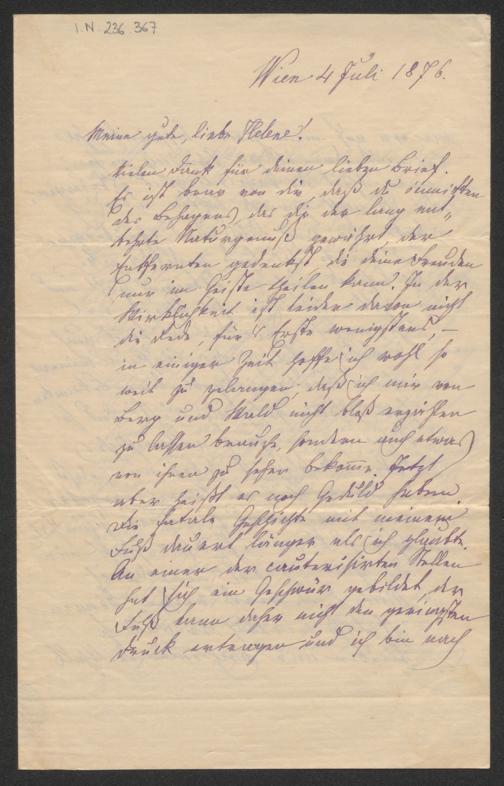 I.N. 236.367
Wien 4 Juli 1876.
Meine gute, liebe Helene!
Vielen Dank für deinen lieben Brief.
Es ist brav von dir, daß du inmitten
des Behagens, das dir der lang ent„
behrte Naturgenuß gewährt, der
Entfernten gedenkst, die deine Freuden
nur im Geiste theilen kann. In der
Wirklichkeit ist leider davon nicht
die Rede, für's Erste wenigstens, –
in einiger Zeit hoffe ich wohl so
weit zu gelangen daß ich mir von
Berg und Wald nicht bloß erzählen
zu lassen brauche, sondern auch etwas
von ihnen zu sehen bekomme. Jetzt
aber heißt es noch Geduld haben.
Die fatale Geschichte mit meinem
Fuß dauert länger als ich glaubte.
An einer der cauterisirten Stellen
hat sich ein Geschwür gebildet, der
Fuß kann daher nicht den geringsten
Druck ertragen und ich bin nach